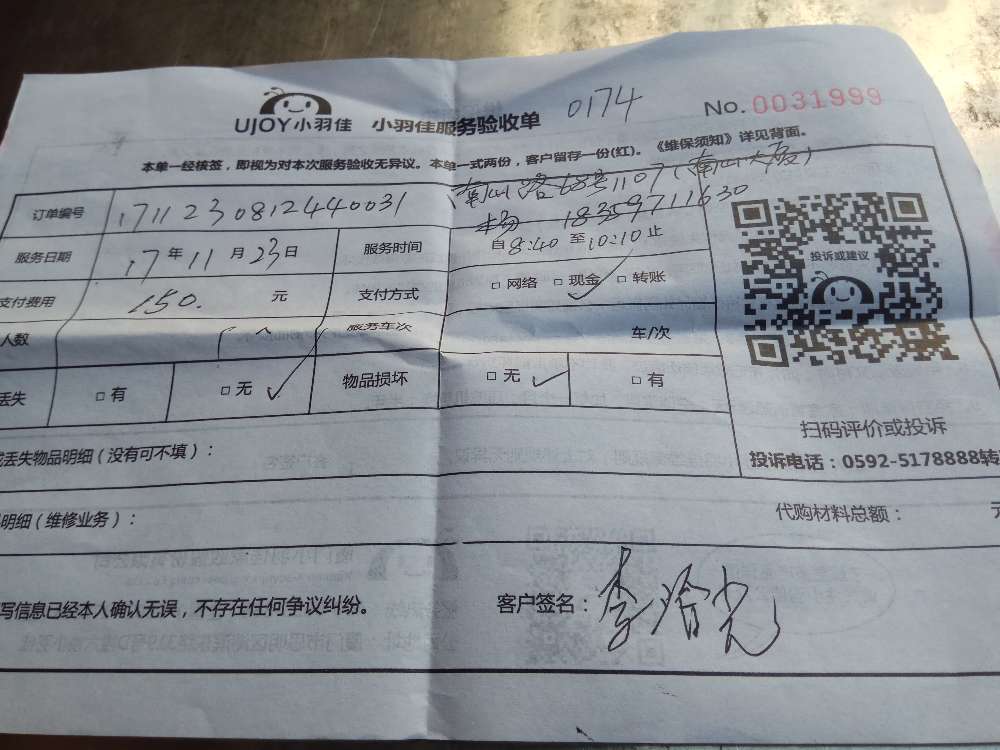 UJOY小羽佳 小羽佳服务验收单 0174 No.0031999
本单一经核签，即视为对本次服务验收无异议。本单一式两份，客户留存一份(红)。《维保须知》详见背面。
订单编号 1711230812440031 南山路68号1107(南山大厦)
18359711630
服务日期 17年11月23日 服务时间 自8:40至10:10止
支付费用 150. 元 支付方式 □网络 □现金 ✓ □转账
人数 1个 服务车次 车/次
丢失 □有 □无 ✓ 物品损坏 □无 ✓ □有
投诉或建议
扫码评价或投诉
投诉电话：0592-5178888转
丢失物品明细（没有可不填）：
明细（维修业务）： 代购材料总额： 元
写信息已经本人确认无误，不存在任何争议纠纷。 客户签名：李治光